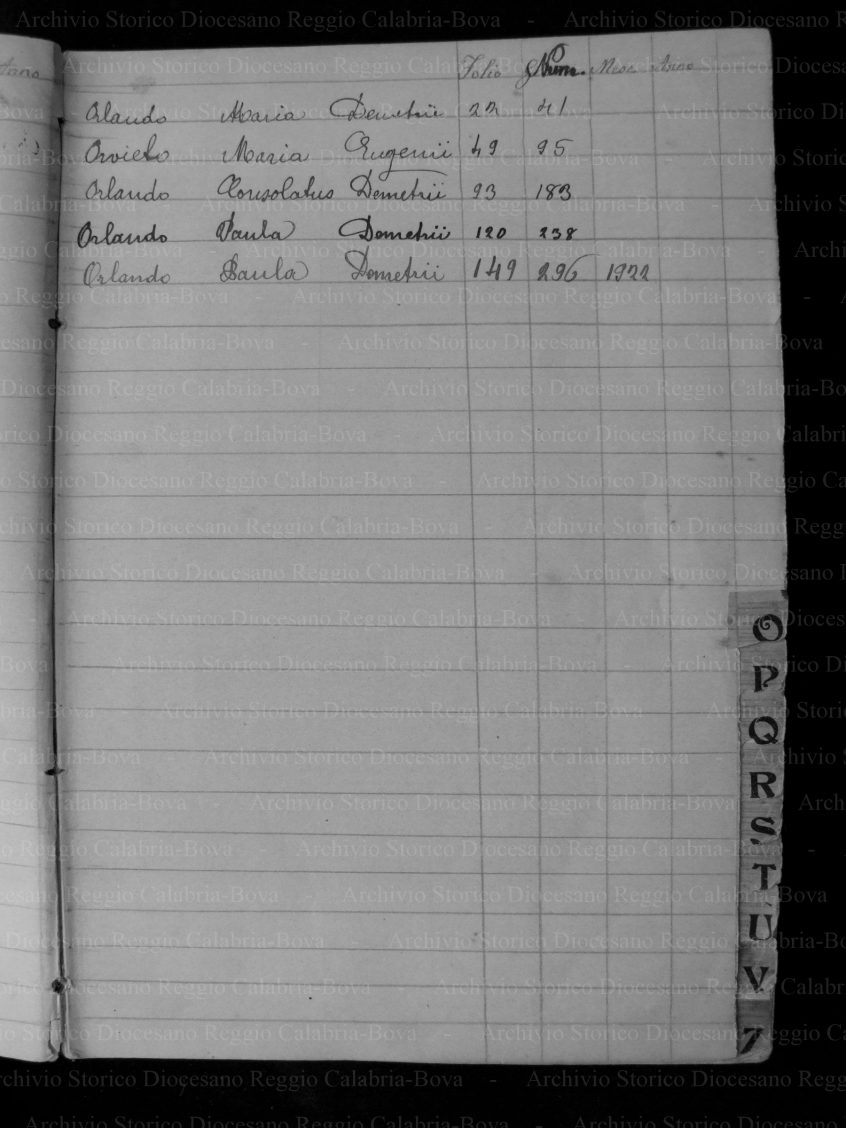 Folio Num. Mese Anno
Orlando Maria Demetrii 22 41
Orvieto Maria Eugenii 49 95
Orlando Consolatus Demetrii 93 183
Orlando Paula Demetrii 120 238
Orlando Paula Demetrii 149 296 1922
Anno
O
P
Q
R
S
T
U
V
Z
Archivio Storico Diocesano Reggio Calabria-Bova